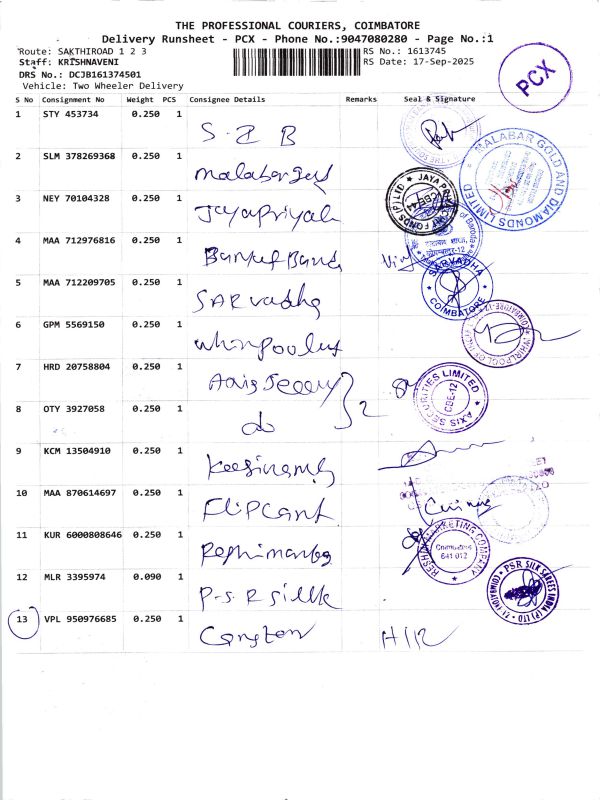 THE PROFESSIONAL COURIERS, COIMBATORE
Delivery Runsheet - PCX - Phone No.:9047080280 - Page No.:1
Route: SAKTHIROAD 1 2 3 RS No.: 1613745
Staff: KRISHNAVENI RS Date: 17-Sep-2025
DRS No.: DCJB161374501
Vehicle: Two Wheeler Delivery
PCX
S No Consignment No Weight PCS Consignee Details Remarks Seal & Signature
1 STY 453734 0.250 1 S-Z B
2 SLM 378269368 0.250 1 MALABAR GOLD AND DIAMONDS LIMITED
3 NEY 70104328 0.250 1 Jayapriyah
4 MAA 712976816 0.250 1
5 MAA 712209705 0.250 1 SARvadha SARVADHA COIMBATORE
6 GPM 5569150 0.250 1
7 HRD 20758804 0.250 1 2 AXIS SECURITIES LIMITED CBE-12
8 OTY 3927058 0.250 1 do
9 KCM 13504910 0.250 1
10 MAA 870614697 0.250 1 FlipCart
11 KUR 6000808646 0.250 1 MARKETING COMPANY Coimbatore 641 012
12 MLR 3395974 0.090 1 P-S R Sillk PSR SILK SAREES INDIA (P) LTD
13 VPL 950976685 0.250 1